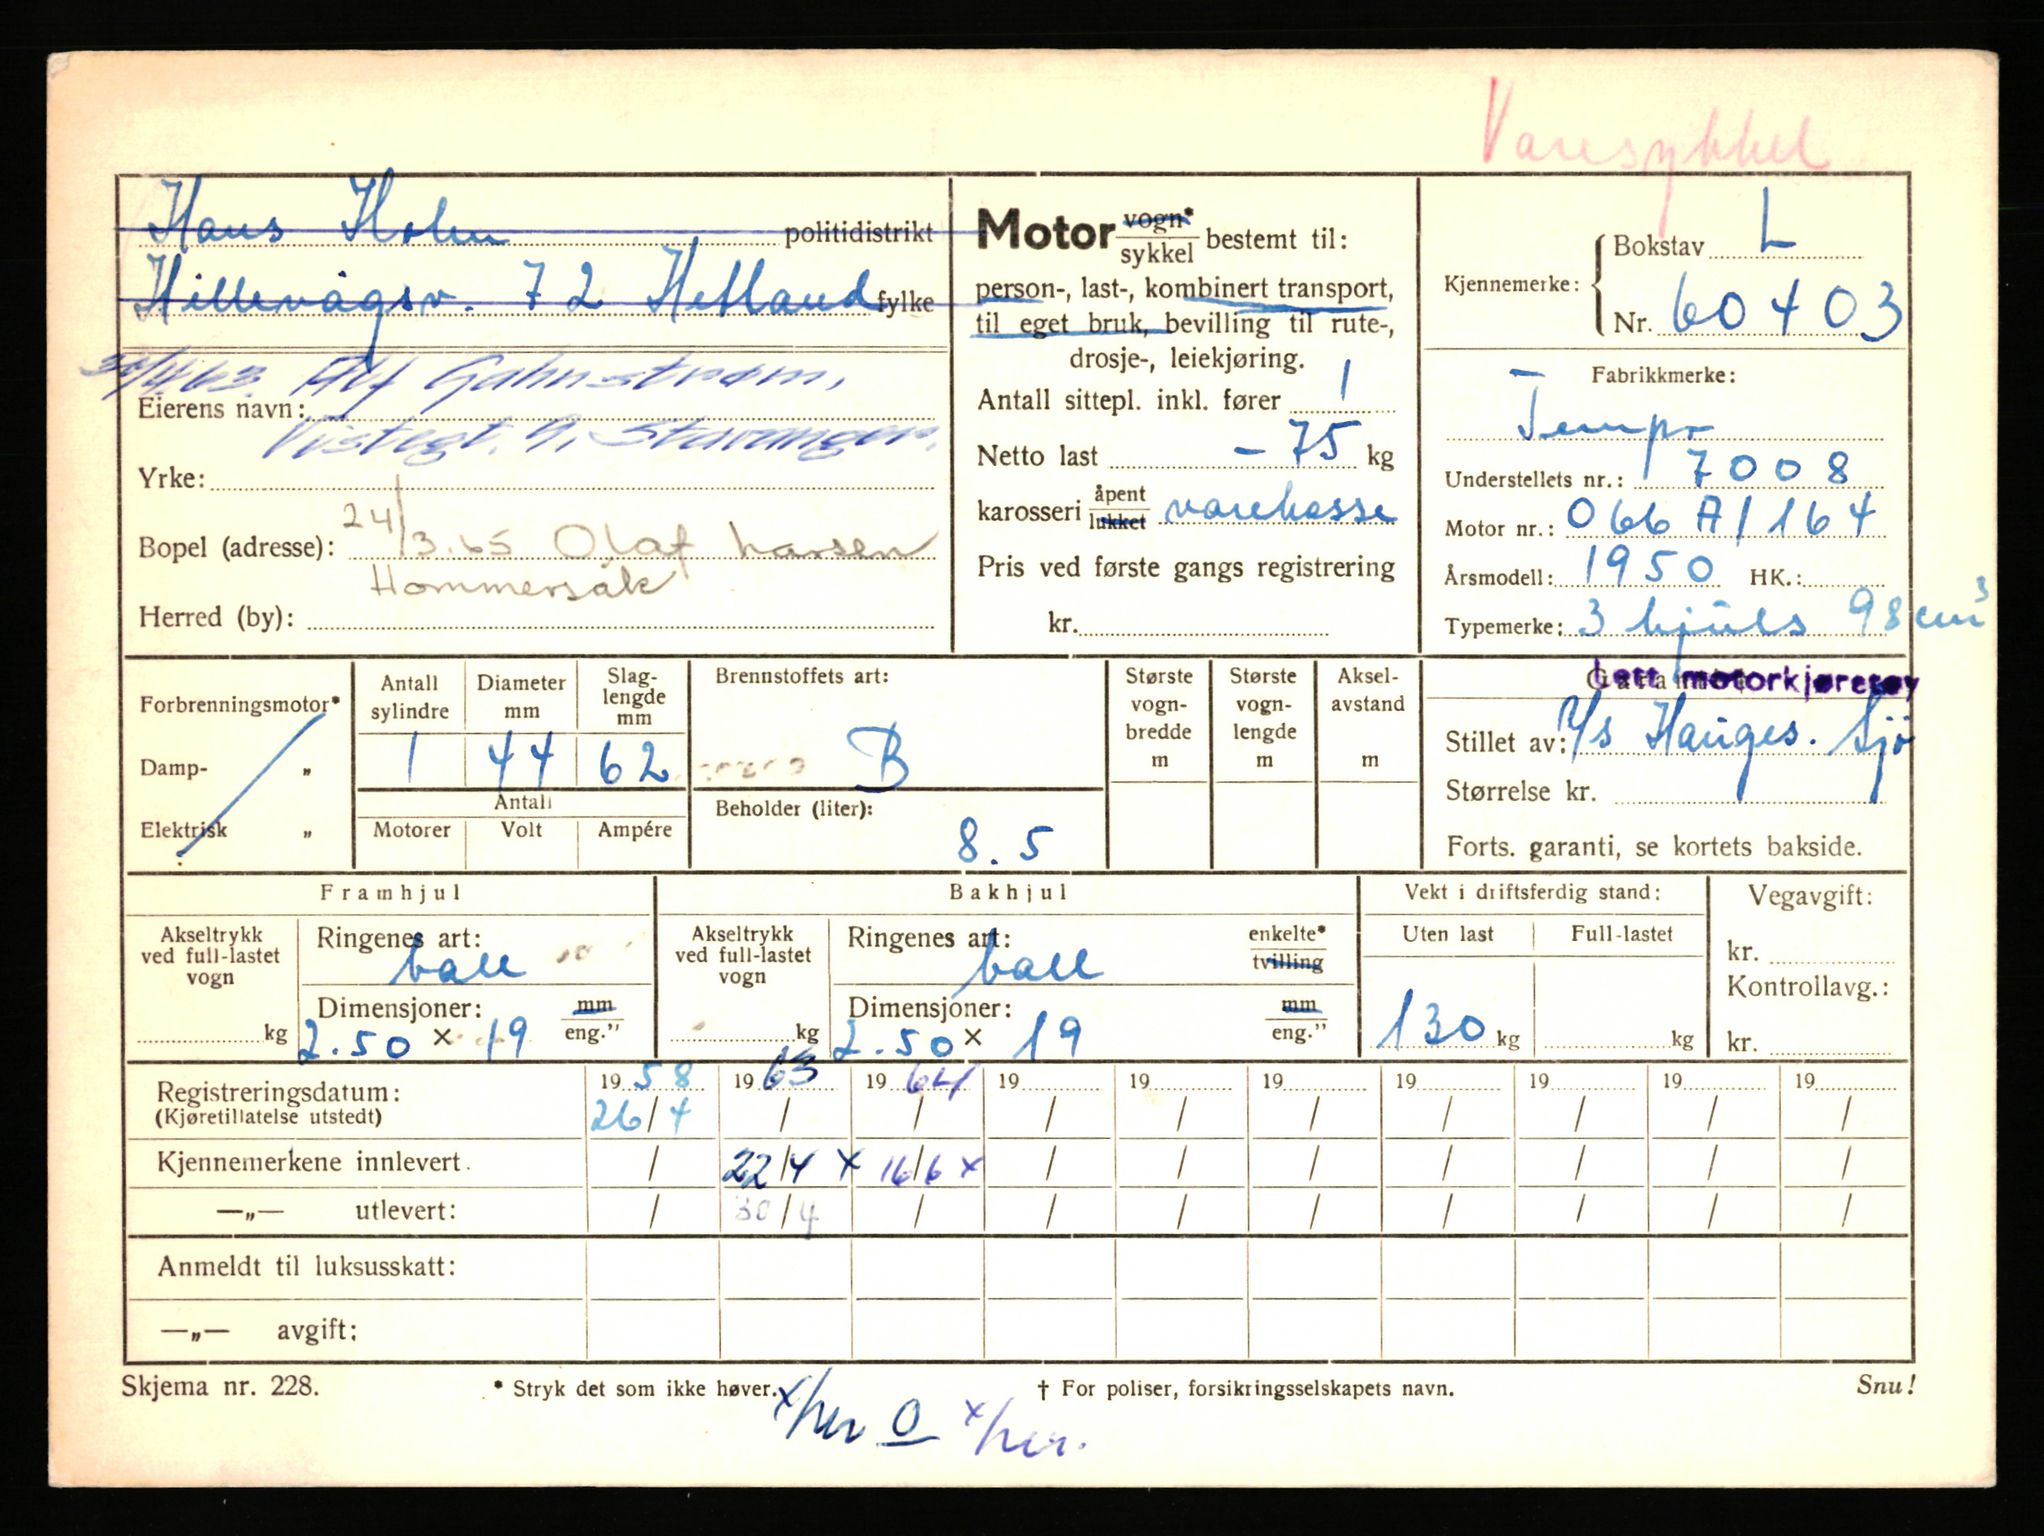 Varesykkel
Hans Holm politidistrikt
Hillevågsv. 72 Hetland fylke
30/4.63. Alf Gahnstrøm,
Eierens navn:
Vistegt. 9, Stavanger.
Yrke:
24/3.65 Olaf Larsen
Bopel (adresse):
Hommersåk
Herred (by):
Motor vogn* / sykkel bestemt til:
person-, last-, kombinert transport,
til eget bruk, bevilling til rute-,
drosje-, leiekjøring.
Antall sittepl. inkl. fører 1
Netto last - 75 kg
karosseri åpent / lukket varekasse
Pris ved første gangs registrering
kr.
Kjennemerke: Bokstav L
Nr. 60403
Fabrikkmerke:
Tempo
Understellets nr.: 7008
Motor nr.: 066 A/164
Årsmodell: 1950 HK.:
Typemerke: 3 hjuls 98 cm³
Lett motorkjøretøy
Stillet av: A/s Hauges. Sjø
Størrelse kr.
Forts. garanti, se kortets bakside.
Forbrenningsmotor*
Damp- „
Elektrisk „
Antall sylindre Diameter mm Slag-lengde mm
1 44 62
Antall
Motorer Volt Ampére
Brennstoffets art:
B
Beholder (liter):
8.5
Største vogn-bredde m
Største vogn-lengde m
Aksel-avstand m
Framhjul
Akseltrykk ved full-lastet vogn
kg
Ringenes art:
ball
Dimensjoner: mm / eng.”
2.50 × 19
Bakhjul
Akseltrykk ved full-lastet vogn
kg
Ringenes art: enkelte* / tvilling
ball
Dimensjoner: mm / eng.”
2.50 × 19
Vekt i driftsferdig stand:
Uten last Full-lastet
130 kg kg
Vegavgift:
kr.
Kontrollavg.:
kr.
Registreringsdatum: 1958 1963 1964 19 19 19 19 19 19 19
(Kjøretillatelse utstedt) 26/4 / / / / / / / / /
Kjennemerkene innlevert. / 22/4 x 16/6 x / / / / / / /
—„— utlevert: / 30/4 / / / / / / / /
Anmeldt til luksusskatt:
—„— avgift:
Skjema nr. 228. * Stryk det som ikke høver. † For poliser, forsikringsselskapets navn. Snu!
x/her O x/her.